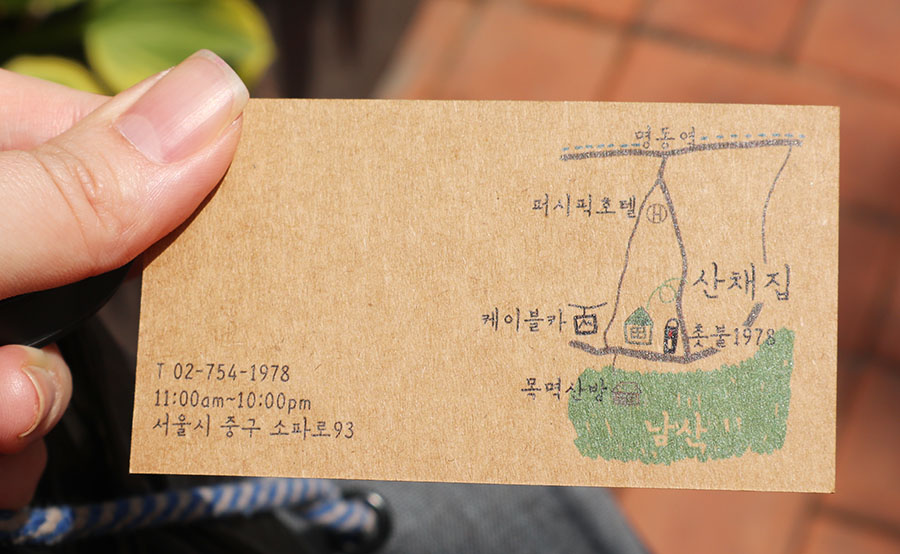 명동역
퍼시픽호텔
H
산채집
케이블카
촛불1978
목멱산방
남산
T 02-754-1978
11:00am~10:00pm
서울시 중구 소파로93